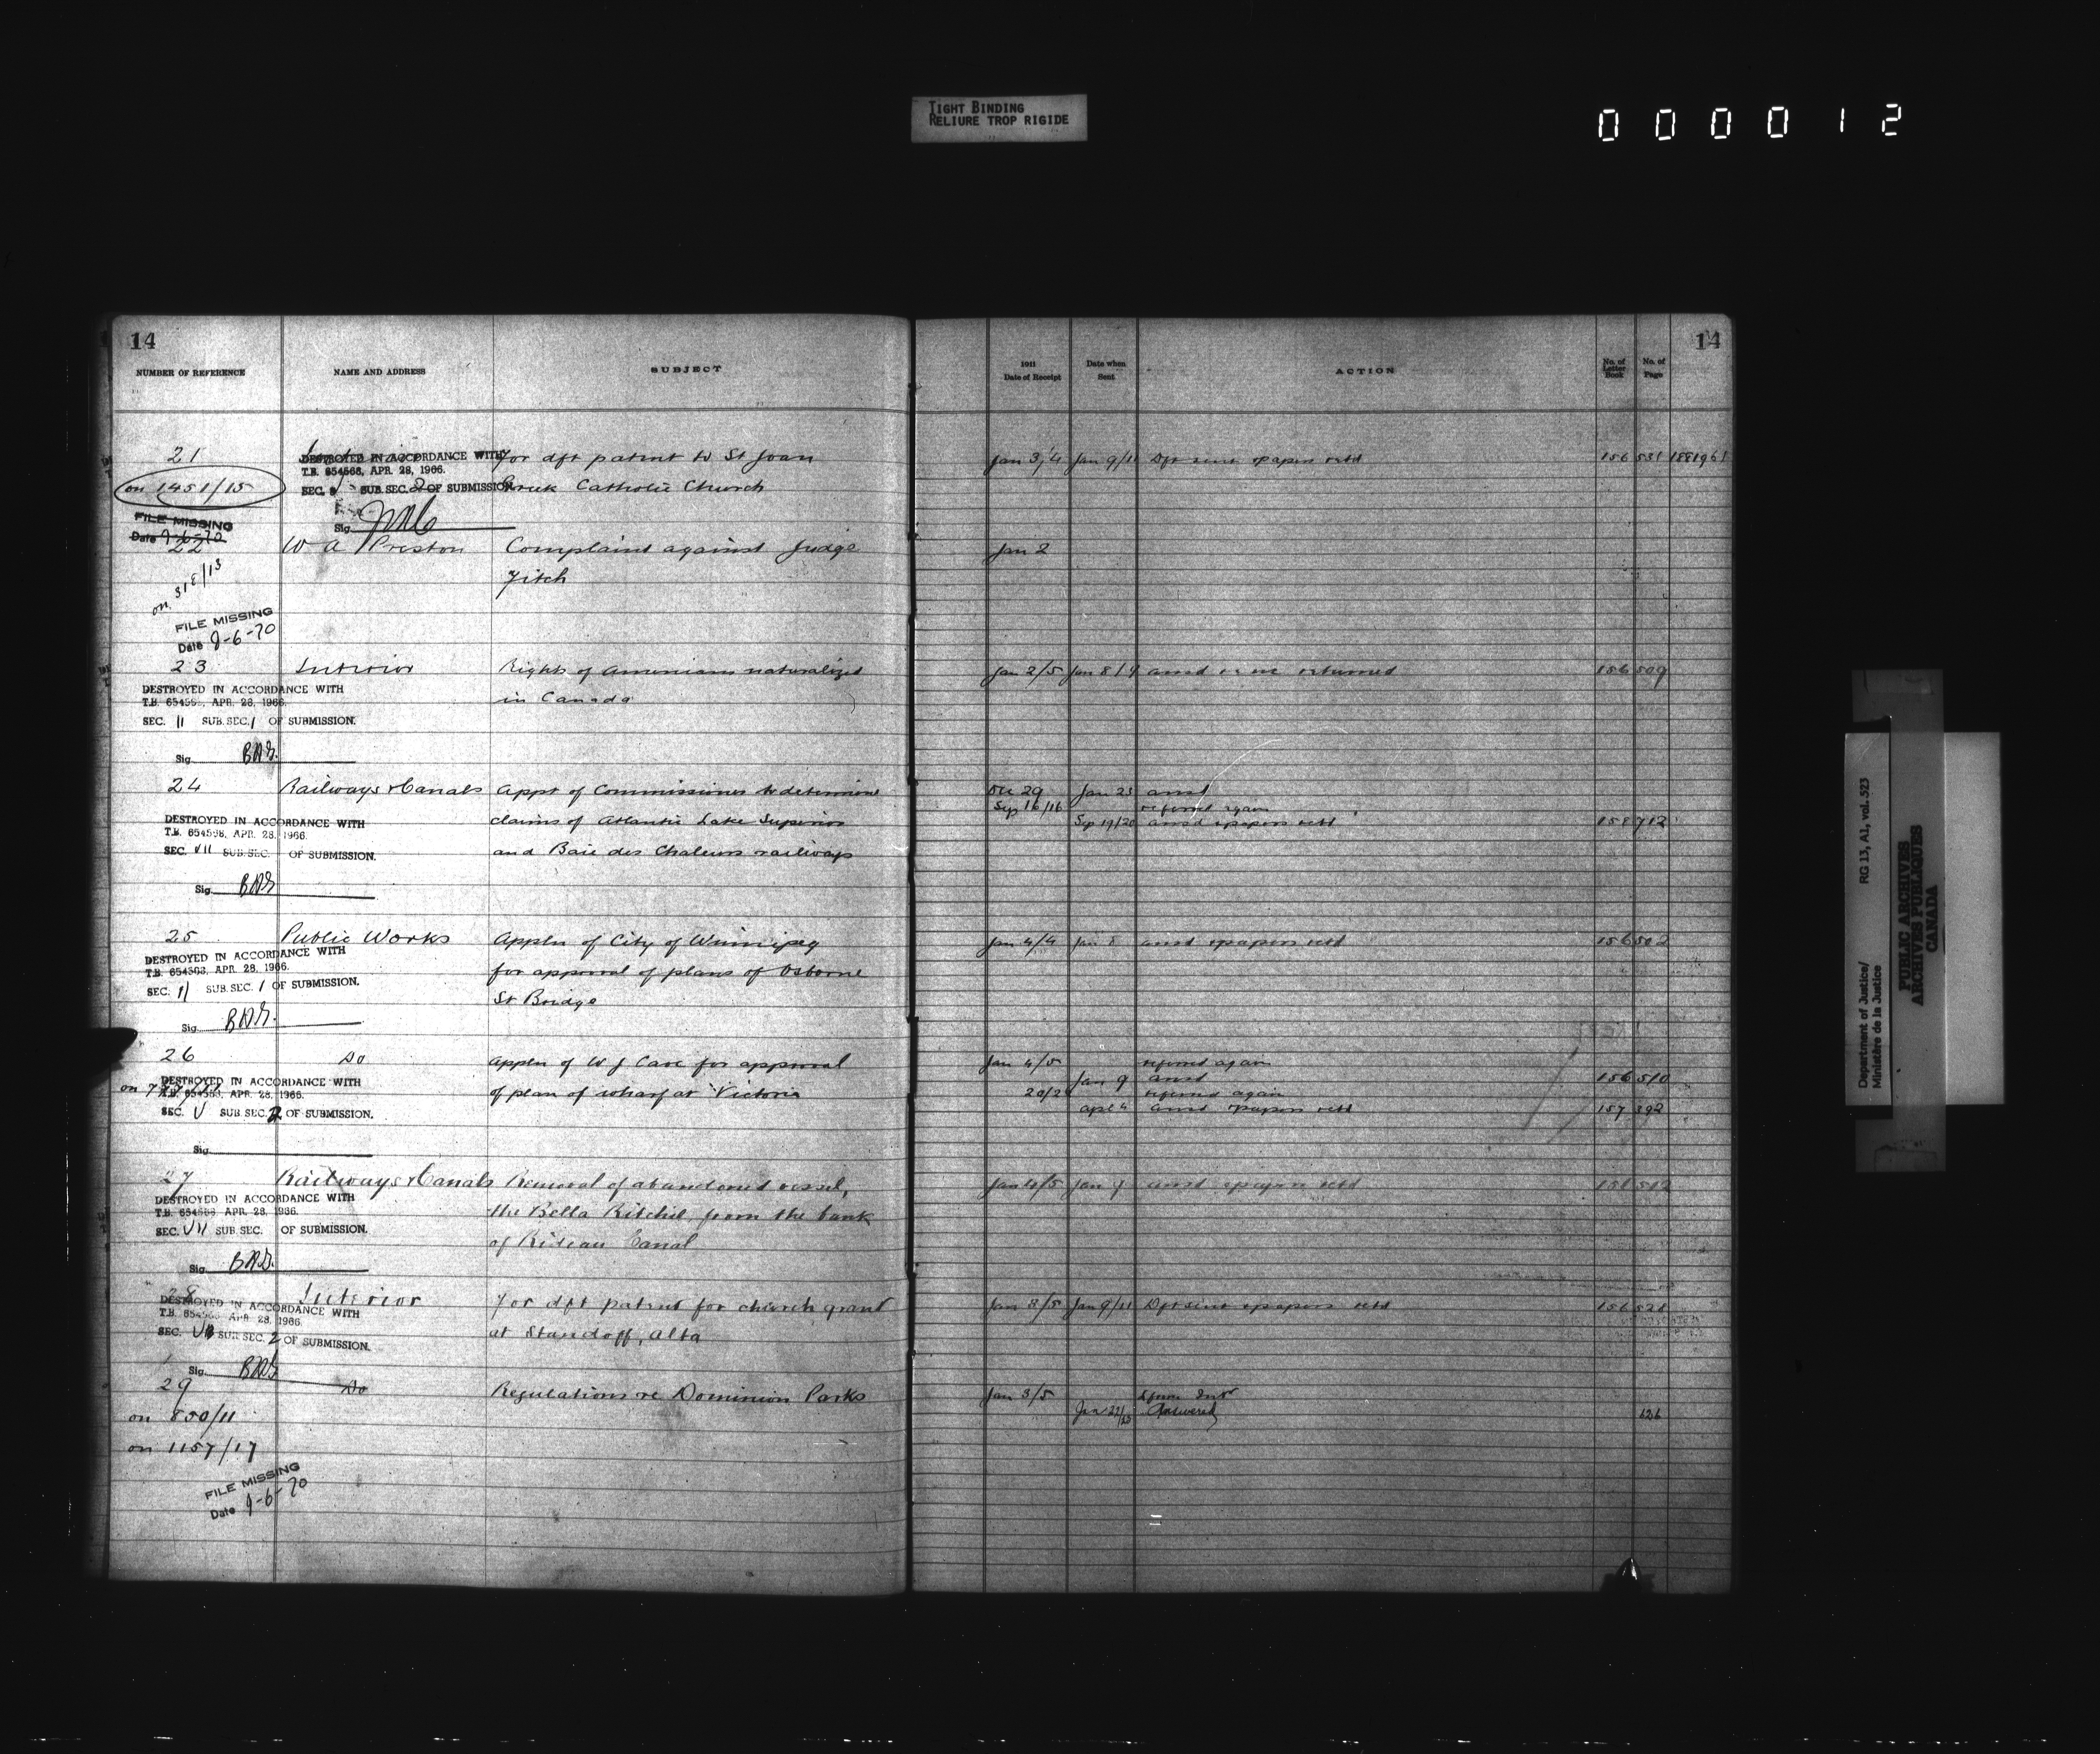 TIGHT BINDING
RELIURE TROP RIGIDE
000012
14
NUMBER OF REFERENCE NAME AND ADDRESS SUBJECT
1911
Date of Receipt
Date when
Sent
ACTION
No. of
Letter
Book
No. of
Page
14
21 For dft patent to St Joan Jan 3/4 Jan 9/11 Dft sent & papers retd 156 531
DESTROYED IN ACCORDANCE WITH
T.B. 654568, APR. 28, 1966.
on 1451/15 Catholic Church
SEC. SUB SEC. 2 OF SUBMISSION
Sig.
FILE MISSING
Date 9-6-70
22 W A Preston Complaint against Judge Jan 2
Fitch
on 318/13
FILE MISSING
Date 9-6-70
23 Interior Rights of Armenians naturalized Jan 2/5 Jan 8/9 returned 156 509
in Canada
DESTROYED IN ACCORDANCE WITH
T.B. APR. 28, 1966.
SEC. 11 SUB. SEC. 1 OF SUBMISSION.
Sig.
24 Railways & Canals Appt of Commissioner to determine Dec 29 Jan 23 ansd
Sep 16/16 referred again
claims of Atlantic Lake Superior Sep 19/20 ansd & papers retd 158 712
and Baie des Chaleurs railways
DESTROYED IN ACCORDANCE WITH
T.B. 654598, APR. 28, 1966.
SEC. VII SUB. SEC. OF SUBMISSION.
Sig.
25 Public Works Appln of City of Winnipeg Jan 4/4 Jan 8 ansd & papers retd 156 502
for approval of plans of Osborne
St Bridge
DESTROYED IN ACCORDANCE WITH
T.B. 654503, APR. 28, 1966.
SEC. 11 SUB. SEC. 1 OF SUBMISSION.
Sig.
26 Do Appln of W J Cave for approval Jan 4/5 referred again
Jan 9 ansd 156 510
of plan of wharf at Victoria referred again
ansd & papers retd 157 392
DESTROYED IN ACCORDANCE WITH
APR. 28, 1966.
SEC. V SUB SEC. 2 OF SUBMISSION.
Sig.
27 Railways & Canals Removal of abandoned vessel, Jan 4/5 Jan 9 ansd & papers retd 156 512
the Bella Ritchie, from the bank
of Rideau Canal
DESTROYED IN ACCORDANCE WITH
T.B. APR. 28, 1966.
SEC. VII SUB SEC. OF SUBMISSION.
Sig.
28 Interior For dft patent for church grant Jan 3/5 Jan 9/11 Dft sent & papers retd 156
at Standoff, Alta
DESTROYED IN ACCORDANCE WITH
T.B. APR. 28, 1966.
SEC. SUB SEC. 2 OF SUBMISSION.
Sig.
29 Do Regulations re Dominion Parks Jan 3/5
on 850/11 Answered
on 1157/17
FILE MISSING
Date 9-6-70
Department of Justice/
Ministère de la Justice
RG 13, A1, vol. 523
PUBLIC ARCHIVES
ARCHIVES PUBLIQUES
CANADA